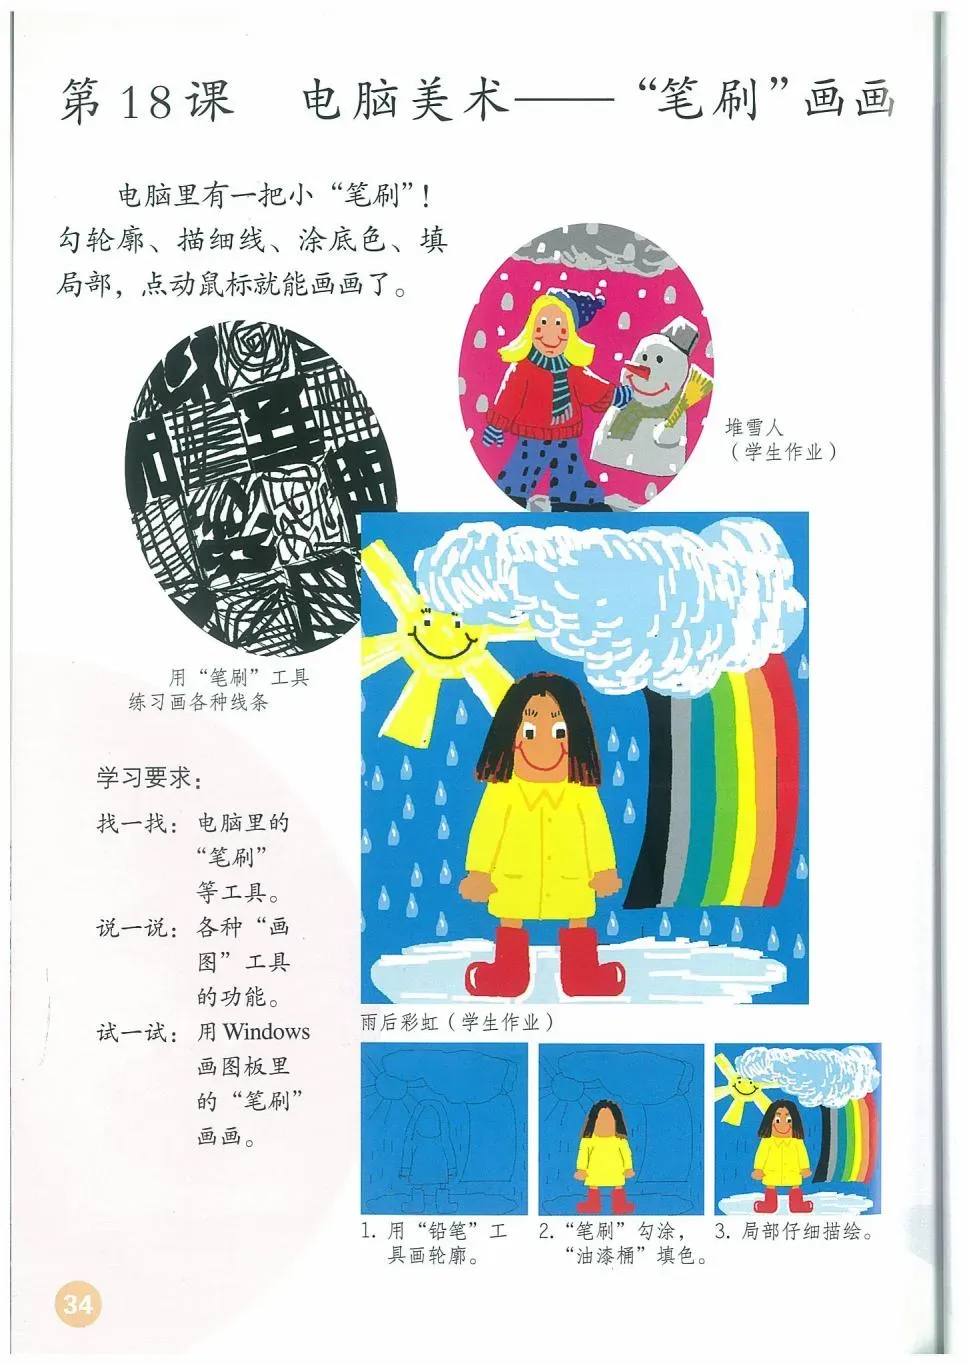 第18课 电脑美术——“笔刷”画画
电脑里有一把小“笔刷”！
勾轮廓、描细线、涂底色、填
局部，点动鼠标就能画画了。
堆雪人
（学生作业）
用“笔刷”工具
练习画各种线条
学习要求：
找一找：电脑里的
“笔刷”
等工具。
说一说：各种“画
图”工具
的功能。
试一试：用Windows
画图板里
的“笔刷”
画画。
雨后彩虹（学生作业）
1. 用“铅笔”工
具画轮廓。
2.“笔刷”勾涂，
“油漆桶”填色。
3. 局部仔细描绘。
34